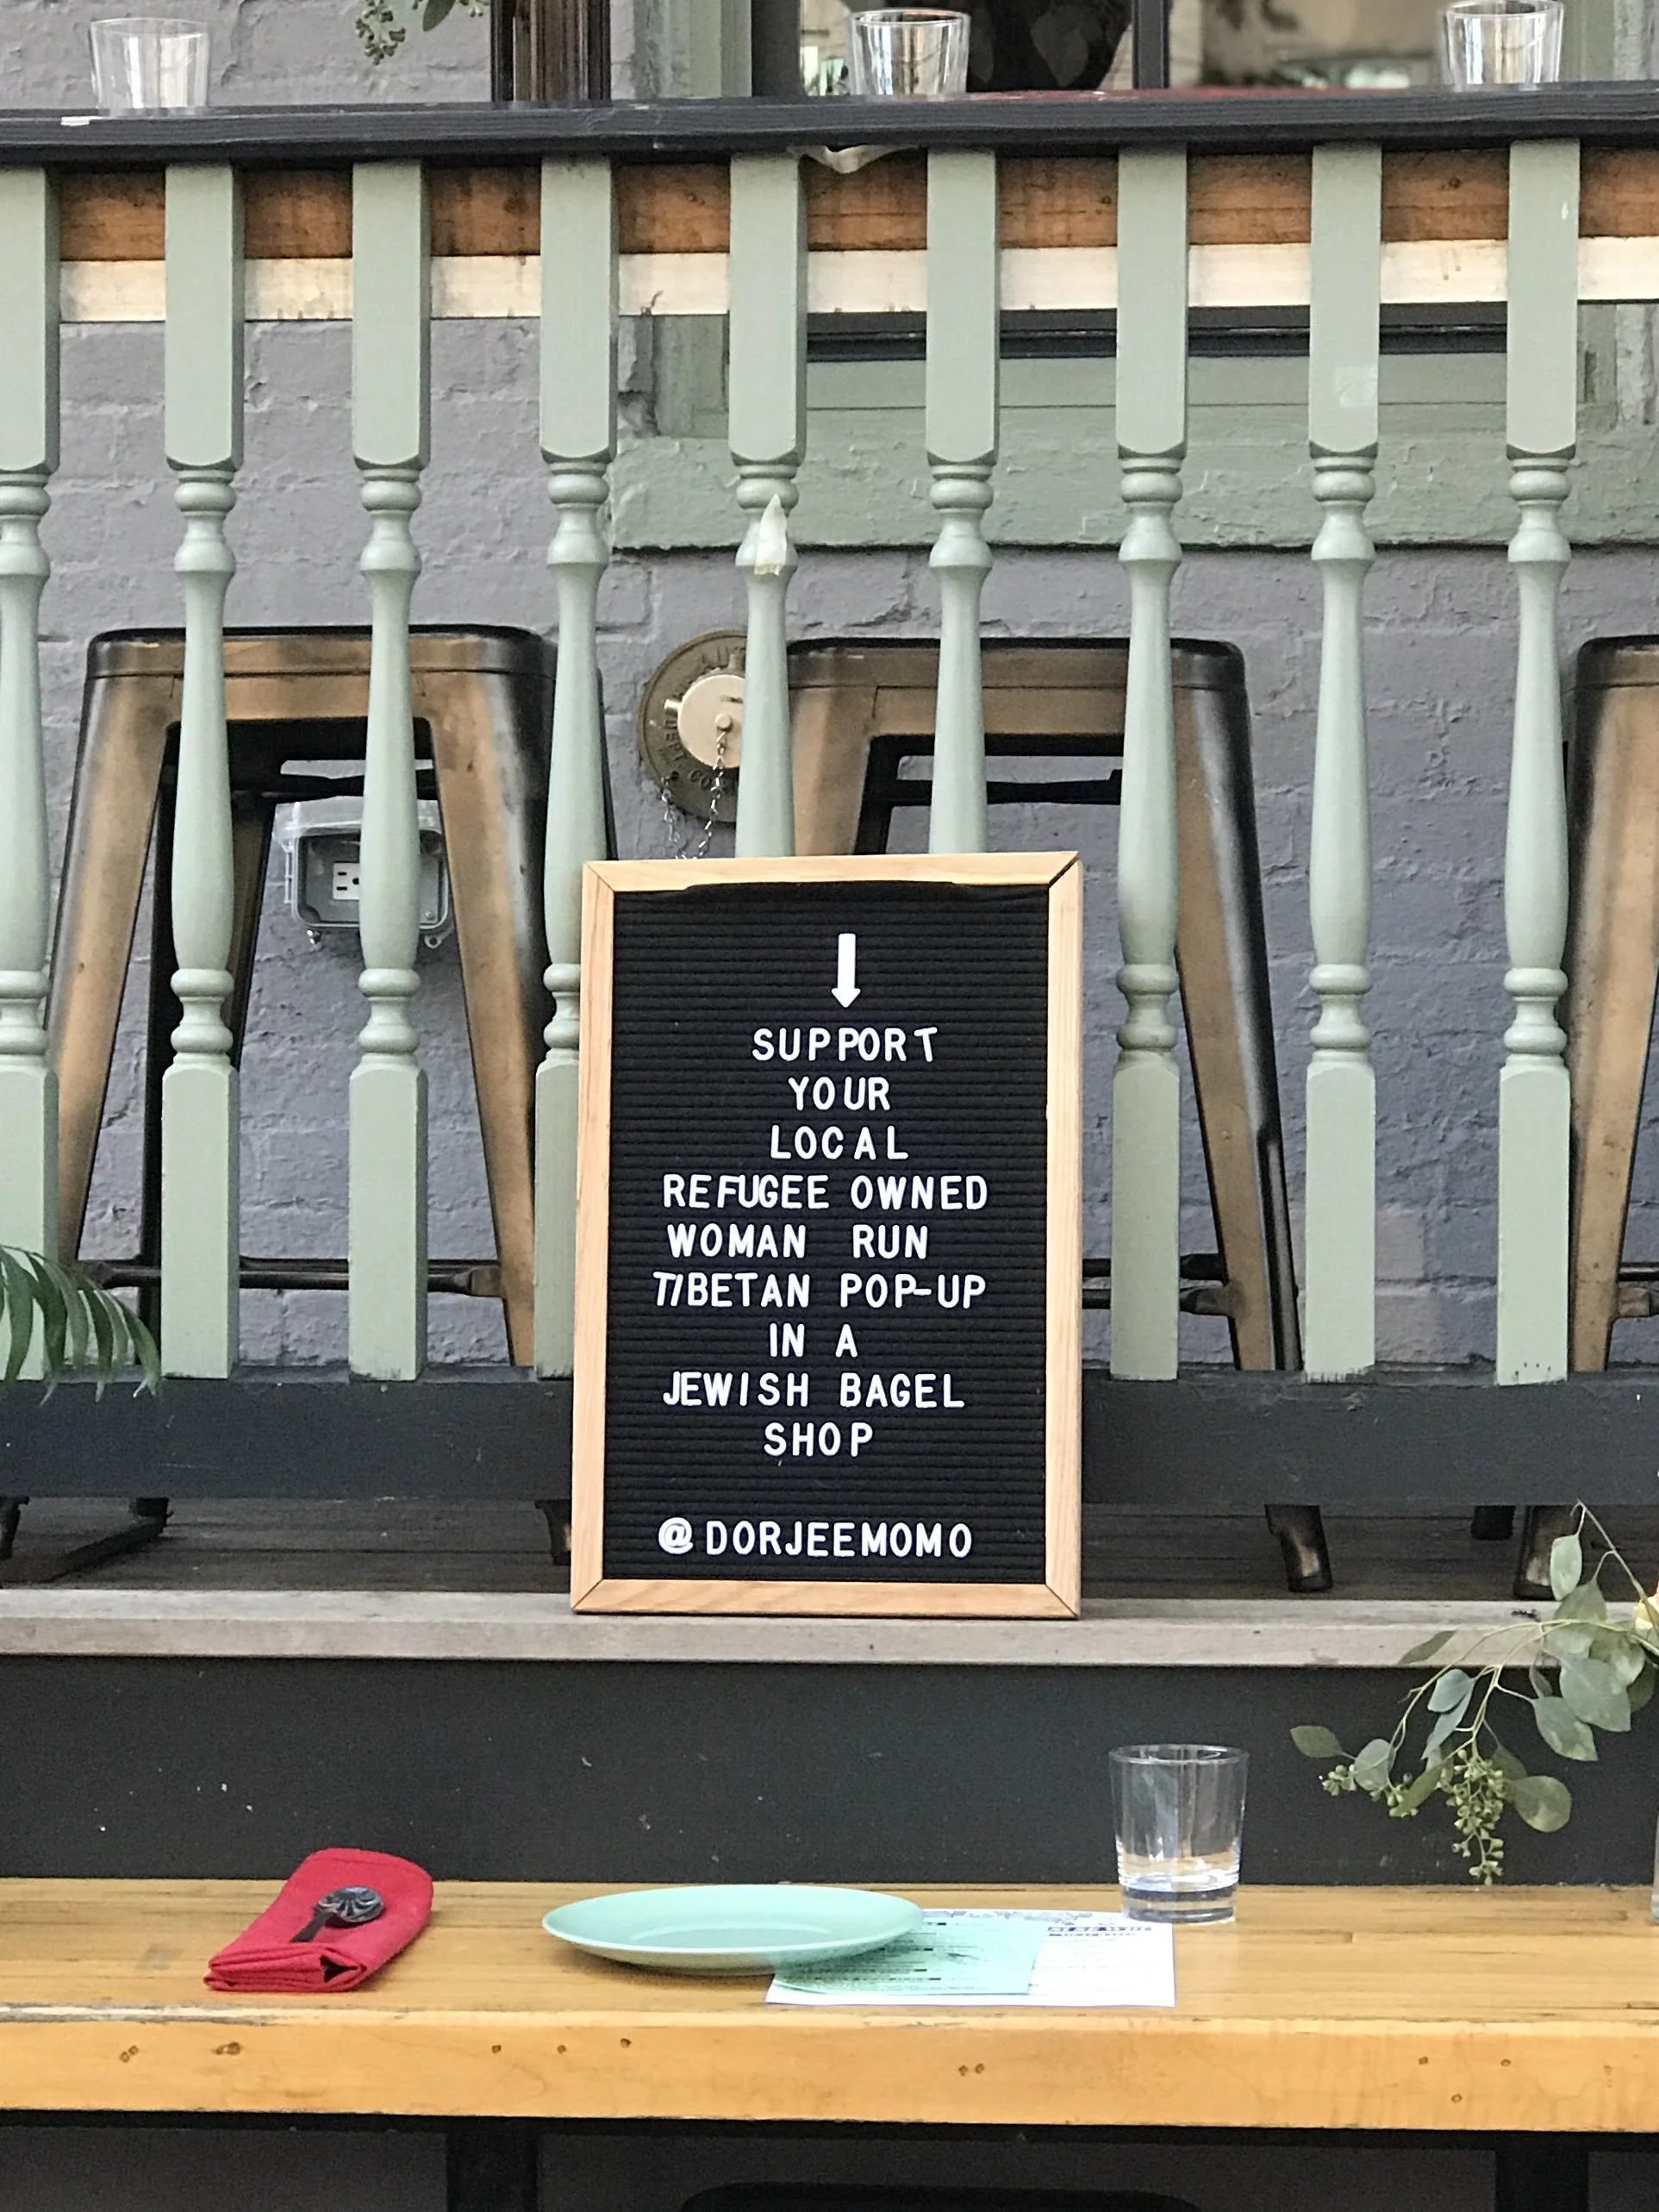 AUT
DEPT. CO
↓
SUPPORT
YOUR
LOCAL
REFUGEE OWNED
WOMAN RUN
TIBETAN POP-UP
IN A
JEWISH BAGEL
SHOP
@DORJEEMOMO